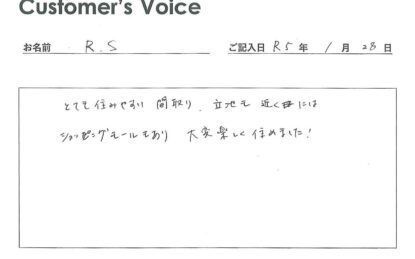 Customer's Voice
お名前 R.S ご記入日 R5年 1月28日
とても住みやすい間取り、立地も近くには
ショッピングモールもあり 大変楽しく住めました!